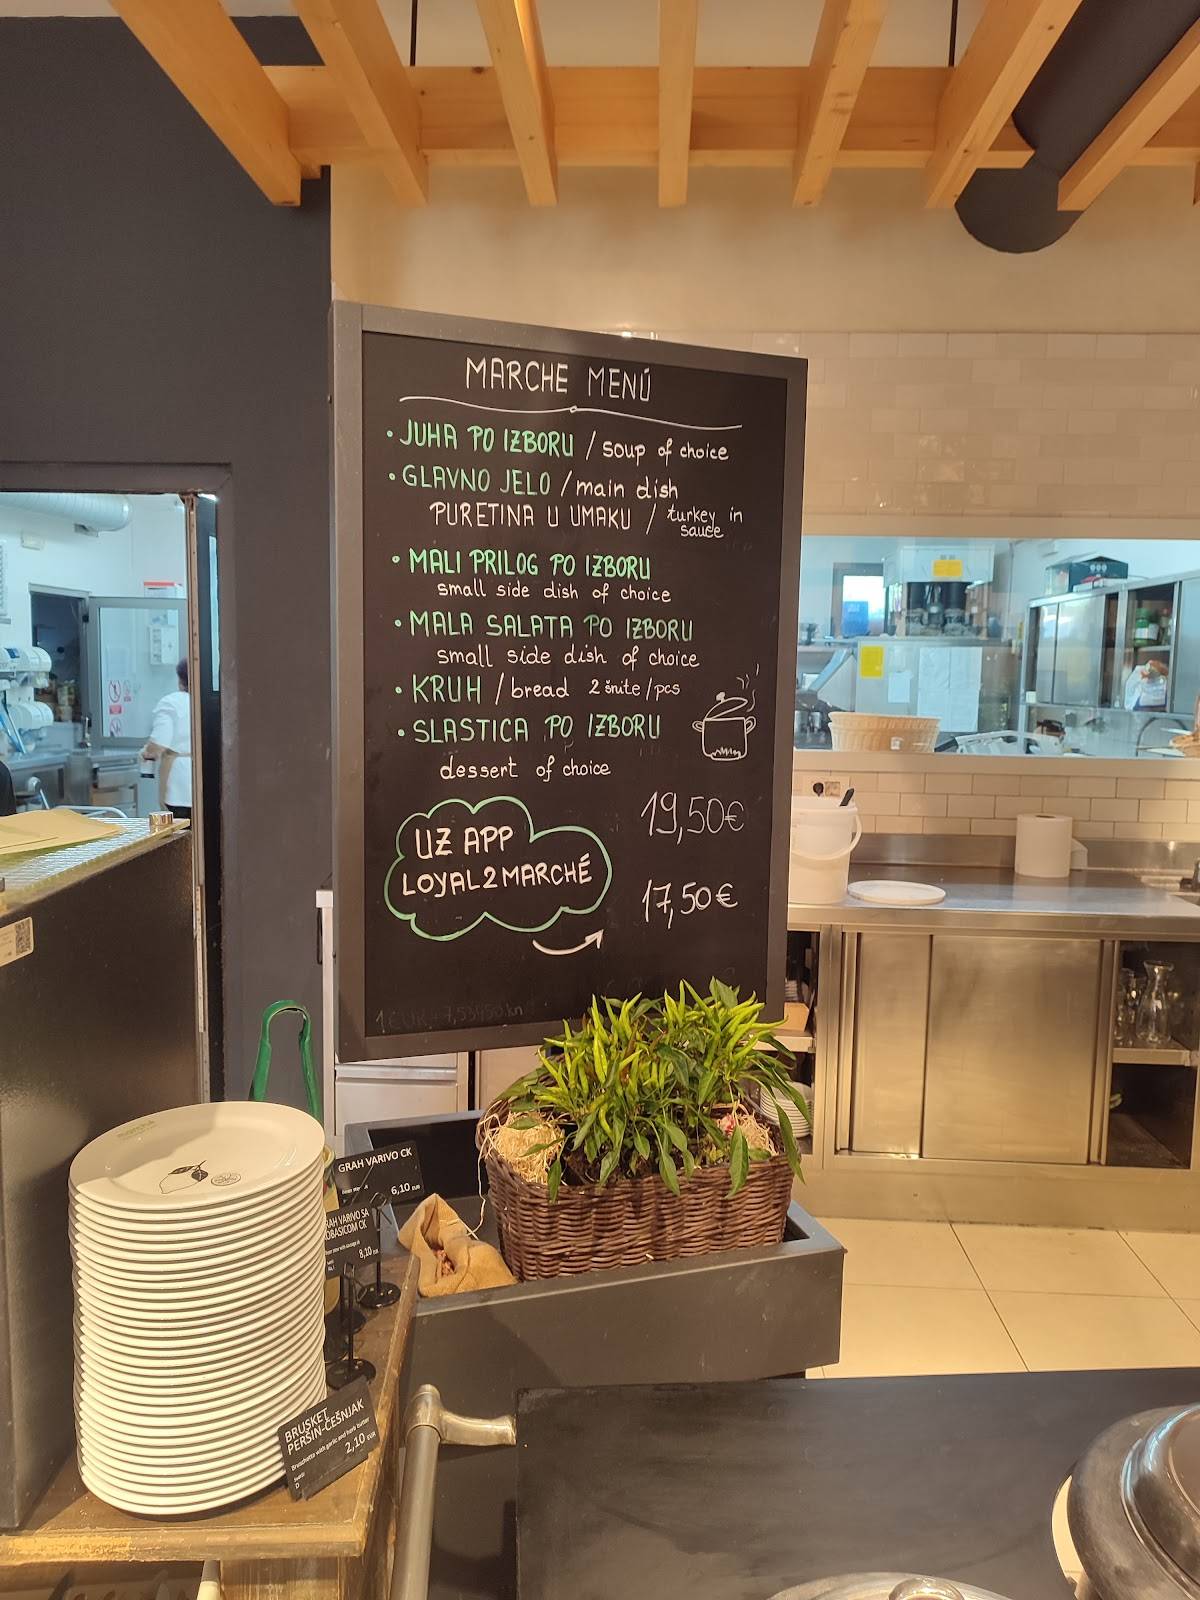 MARCHE MENÚ
• JUHA PO IZBORU / soup of choice
• GLAVNO JELO / main dish
PURETINA U UMAKU / turkey in
sauce
• MALI PRILOG PO IZBORU
small side dish of choice
• MALA SALATA PO IZBORU
small side dish of choice
• KRUH / bread 2 šnite/pcs
• SLASTICA PO IZBORU
dessert of choice
19,50€
UZ APP
LOYAL2MARCHÉ
17,50€
1 EUR = 7,53450 kn
GRAH VARIVO CK
6,10 EUR
GRAH VARIVO SA
KOBASICOM CK
8,10 EUR
BRUSKET
PERŠIN-ČEŠNJAK
Bruschetta with garlic and herb butter
2,10 EUR
D